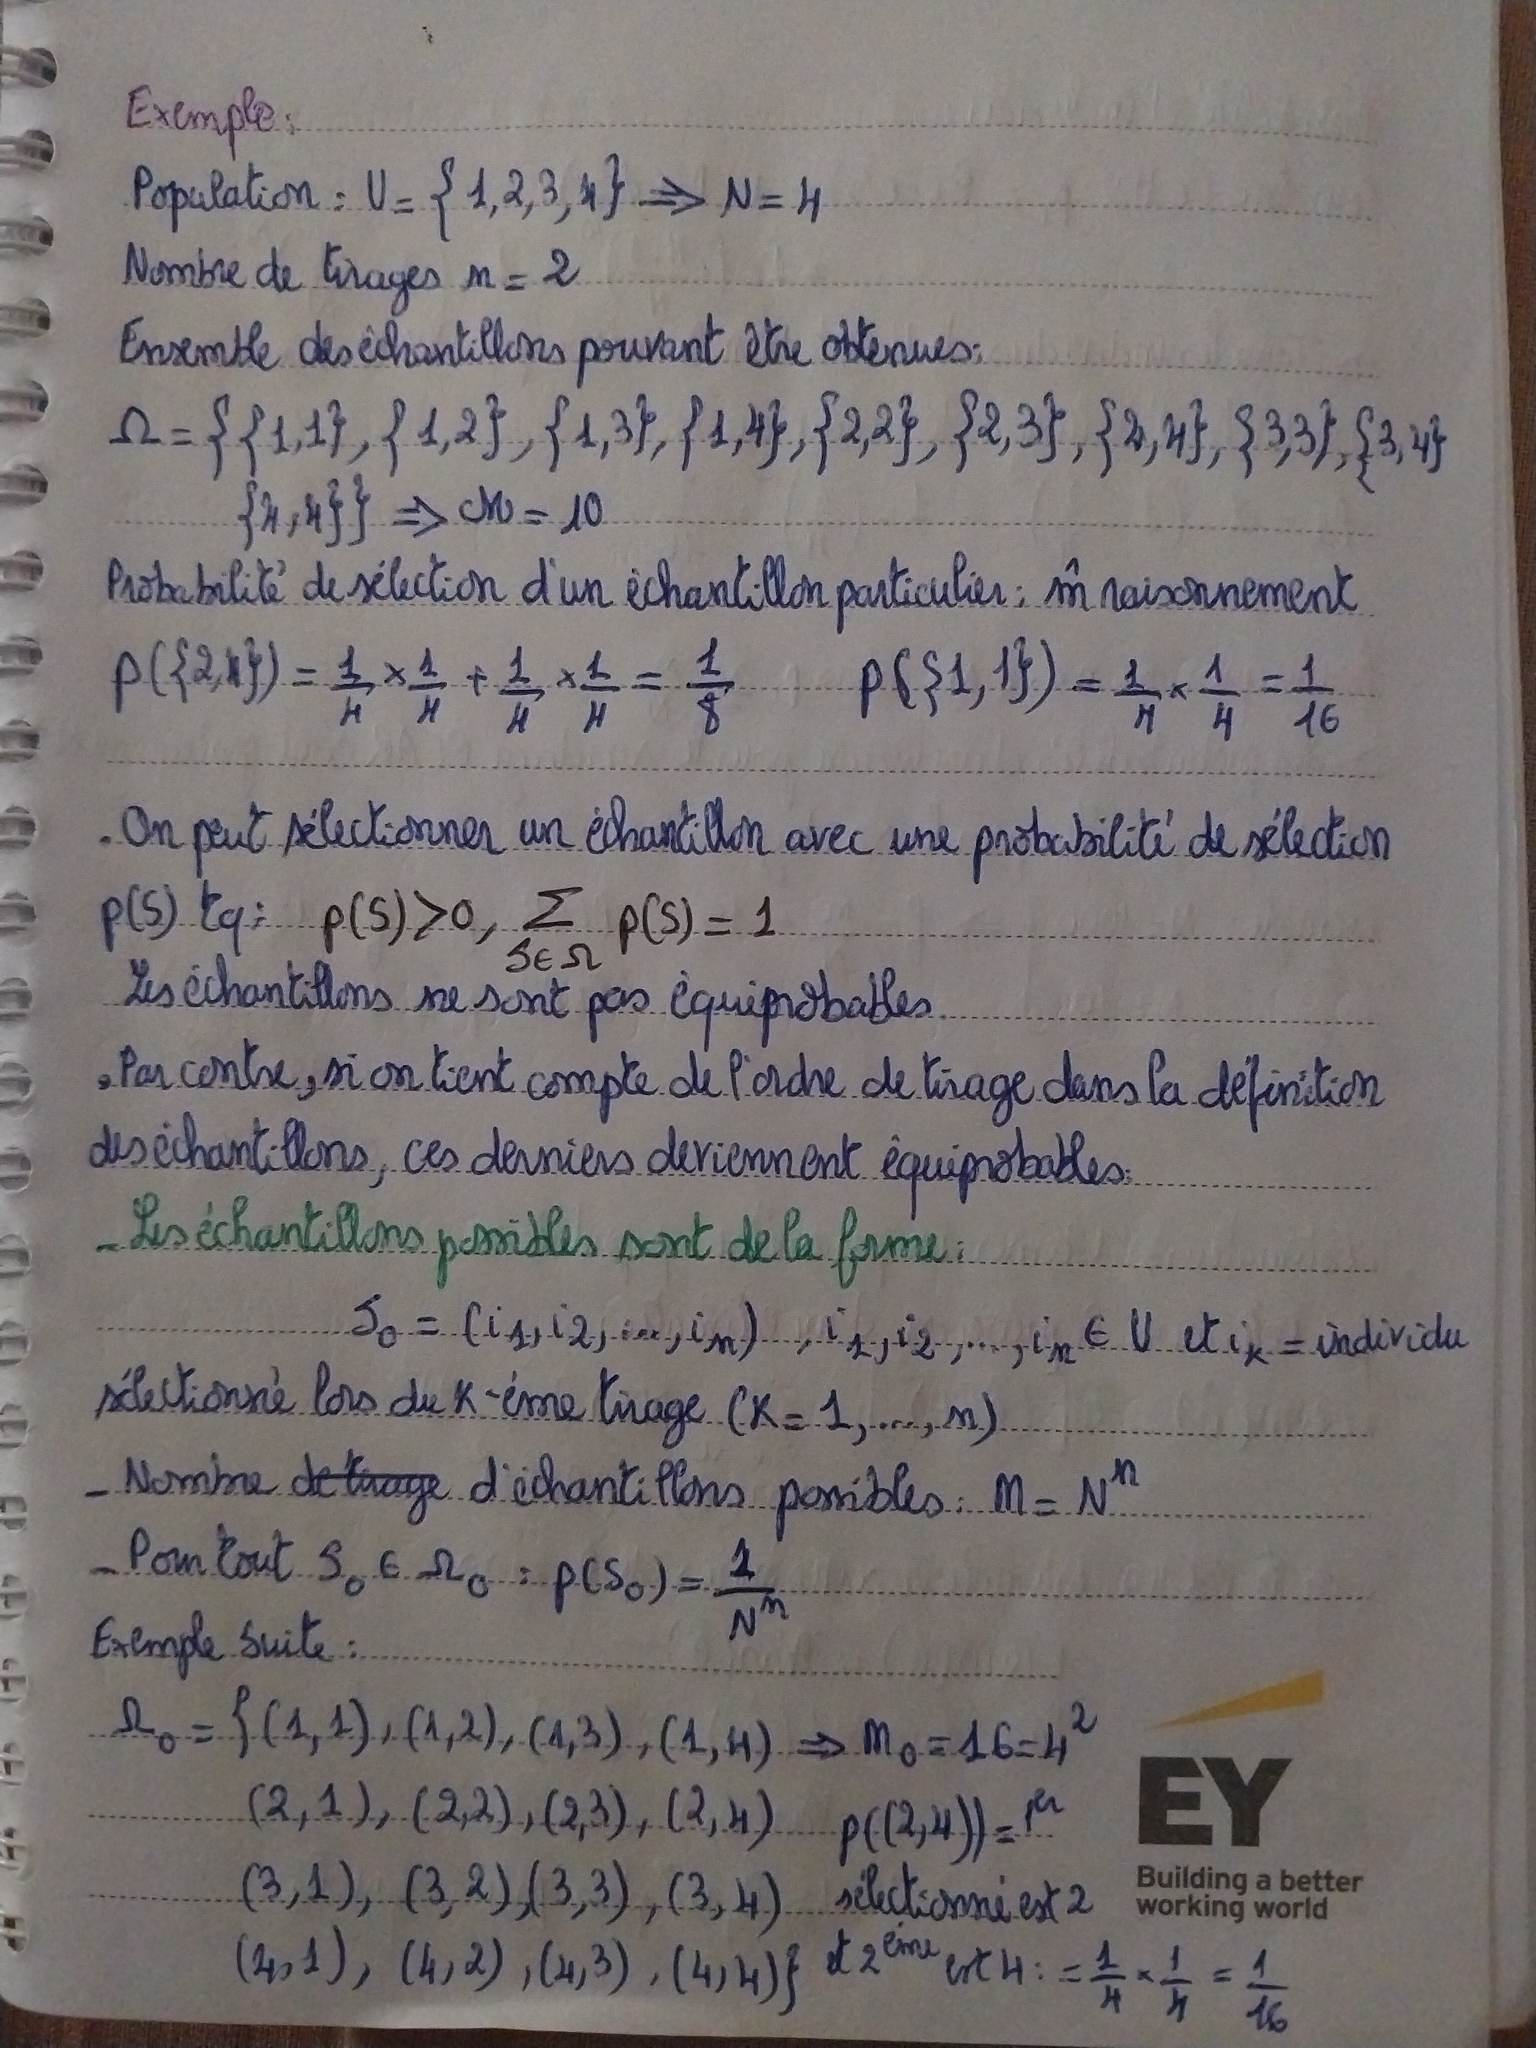 Exemple:
Population : U = { 1,2,3,4 } ⇒ N = 4
Nombre de tirages n = 2
Ensemble des échantillons pouvant être obtenues:
Ω = { {1,1}, {1,2}, {1,3}, {1,4}, {2,2}, {2,3}, {2,4}, {3,3}, {3,4}
{4,4} } ⇒ M = 10
Probabilité de sélection d'un échantillon particulier : m̂ raisonnement
p({2,4}) = 1/4 × 1/4 + 1/4 × 1/4 = 1/8    p({1,1}) = 1/4 × 1/4 = 1/16
. On peut sélectionner un échantillon avec une probabilité de sélection
p(S) tq: p(S) > 0, Σ p(S) = 1
S∈Ω
Les échantillons ne sont pas équiprobables.
. Par contre, si on tient compte de l'ordre de tirage dans la définition
des échantillons, ces derniers deviennent équiprobables:
- Les échantillons possibles sont de la forme:
S₀ = (i₁, i₂, ..., iₙ) , i₁, i₂, ..., iₙ ∈ U et iₖ = individu
sélectionné lors du k-éme tirage (k = 1, ..., n)
- Nombre de tirage d'échantillons possibles: M = Nⁿ
- Pour tout S₀ ∈ Ω₀ : p(S₀) = 1/Nⁿ
Exemple suite :
Ω₀ = { (1,1), (1,2), (1,3), (1,4) ⇒ M₀ = 16 = 4²
(2,1), (2,2), (2,3), (2,4) p((2,4)) = 1er
(3,1), (3,2), (3,3), (3,4) sélectionné est 2
(4,1), (4,2), (4,3), (4,4) } et 2ème est 4 : = 1/4 × 1/4 = 1/16
EY
Building a better
working world